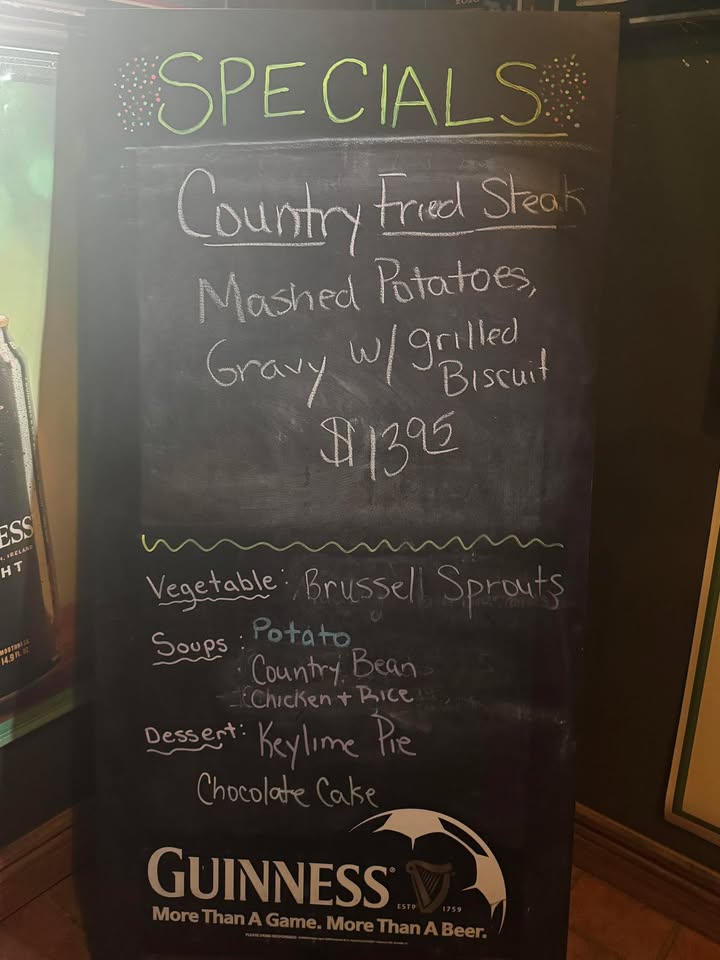 SPECIALS
Country Fried Steak
Mashed Potatoes,
Gravy w/ grilled
Biscuit
$13.95
Vegetable: Brussell Sprouts
Soups: Potato
Country Bean
Chicken + Rice
Dessert: Keylime Pie
Chocolate Cake
GUINNESS®
ESTD 1759
More Than A Game. More Than A Beer.
ESS
HT
14.9 FL